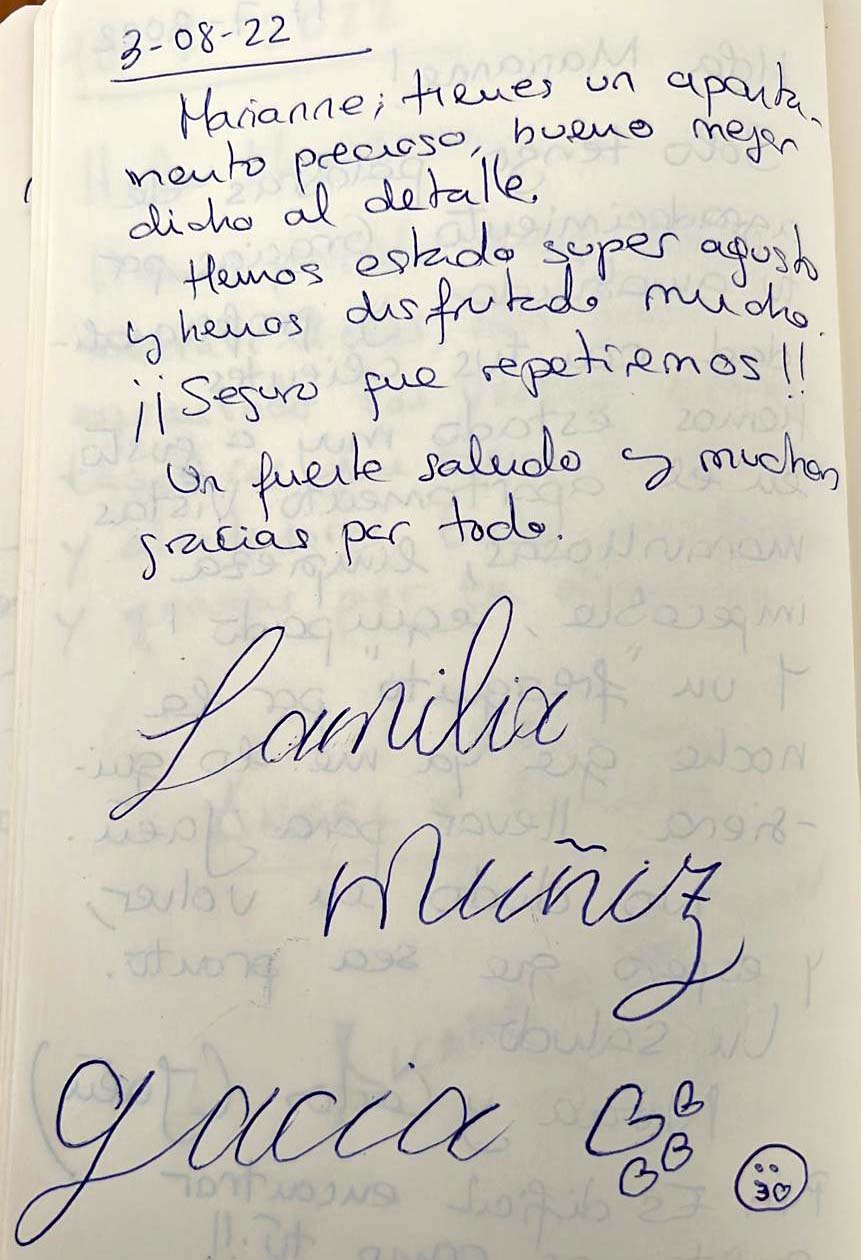 3-08-22
Marianne; tienes un aparta-
mento precioso, bueno mejor
dicho al detalle.
Hemos estado super agusto
y hemos disfrutado mucho.
¡¡Seguro que repetiremos!!
Un fuerte saludo y muchas
gracias por todo.
Familia
Muñiz
gacia